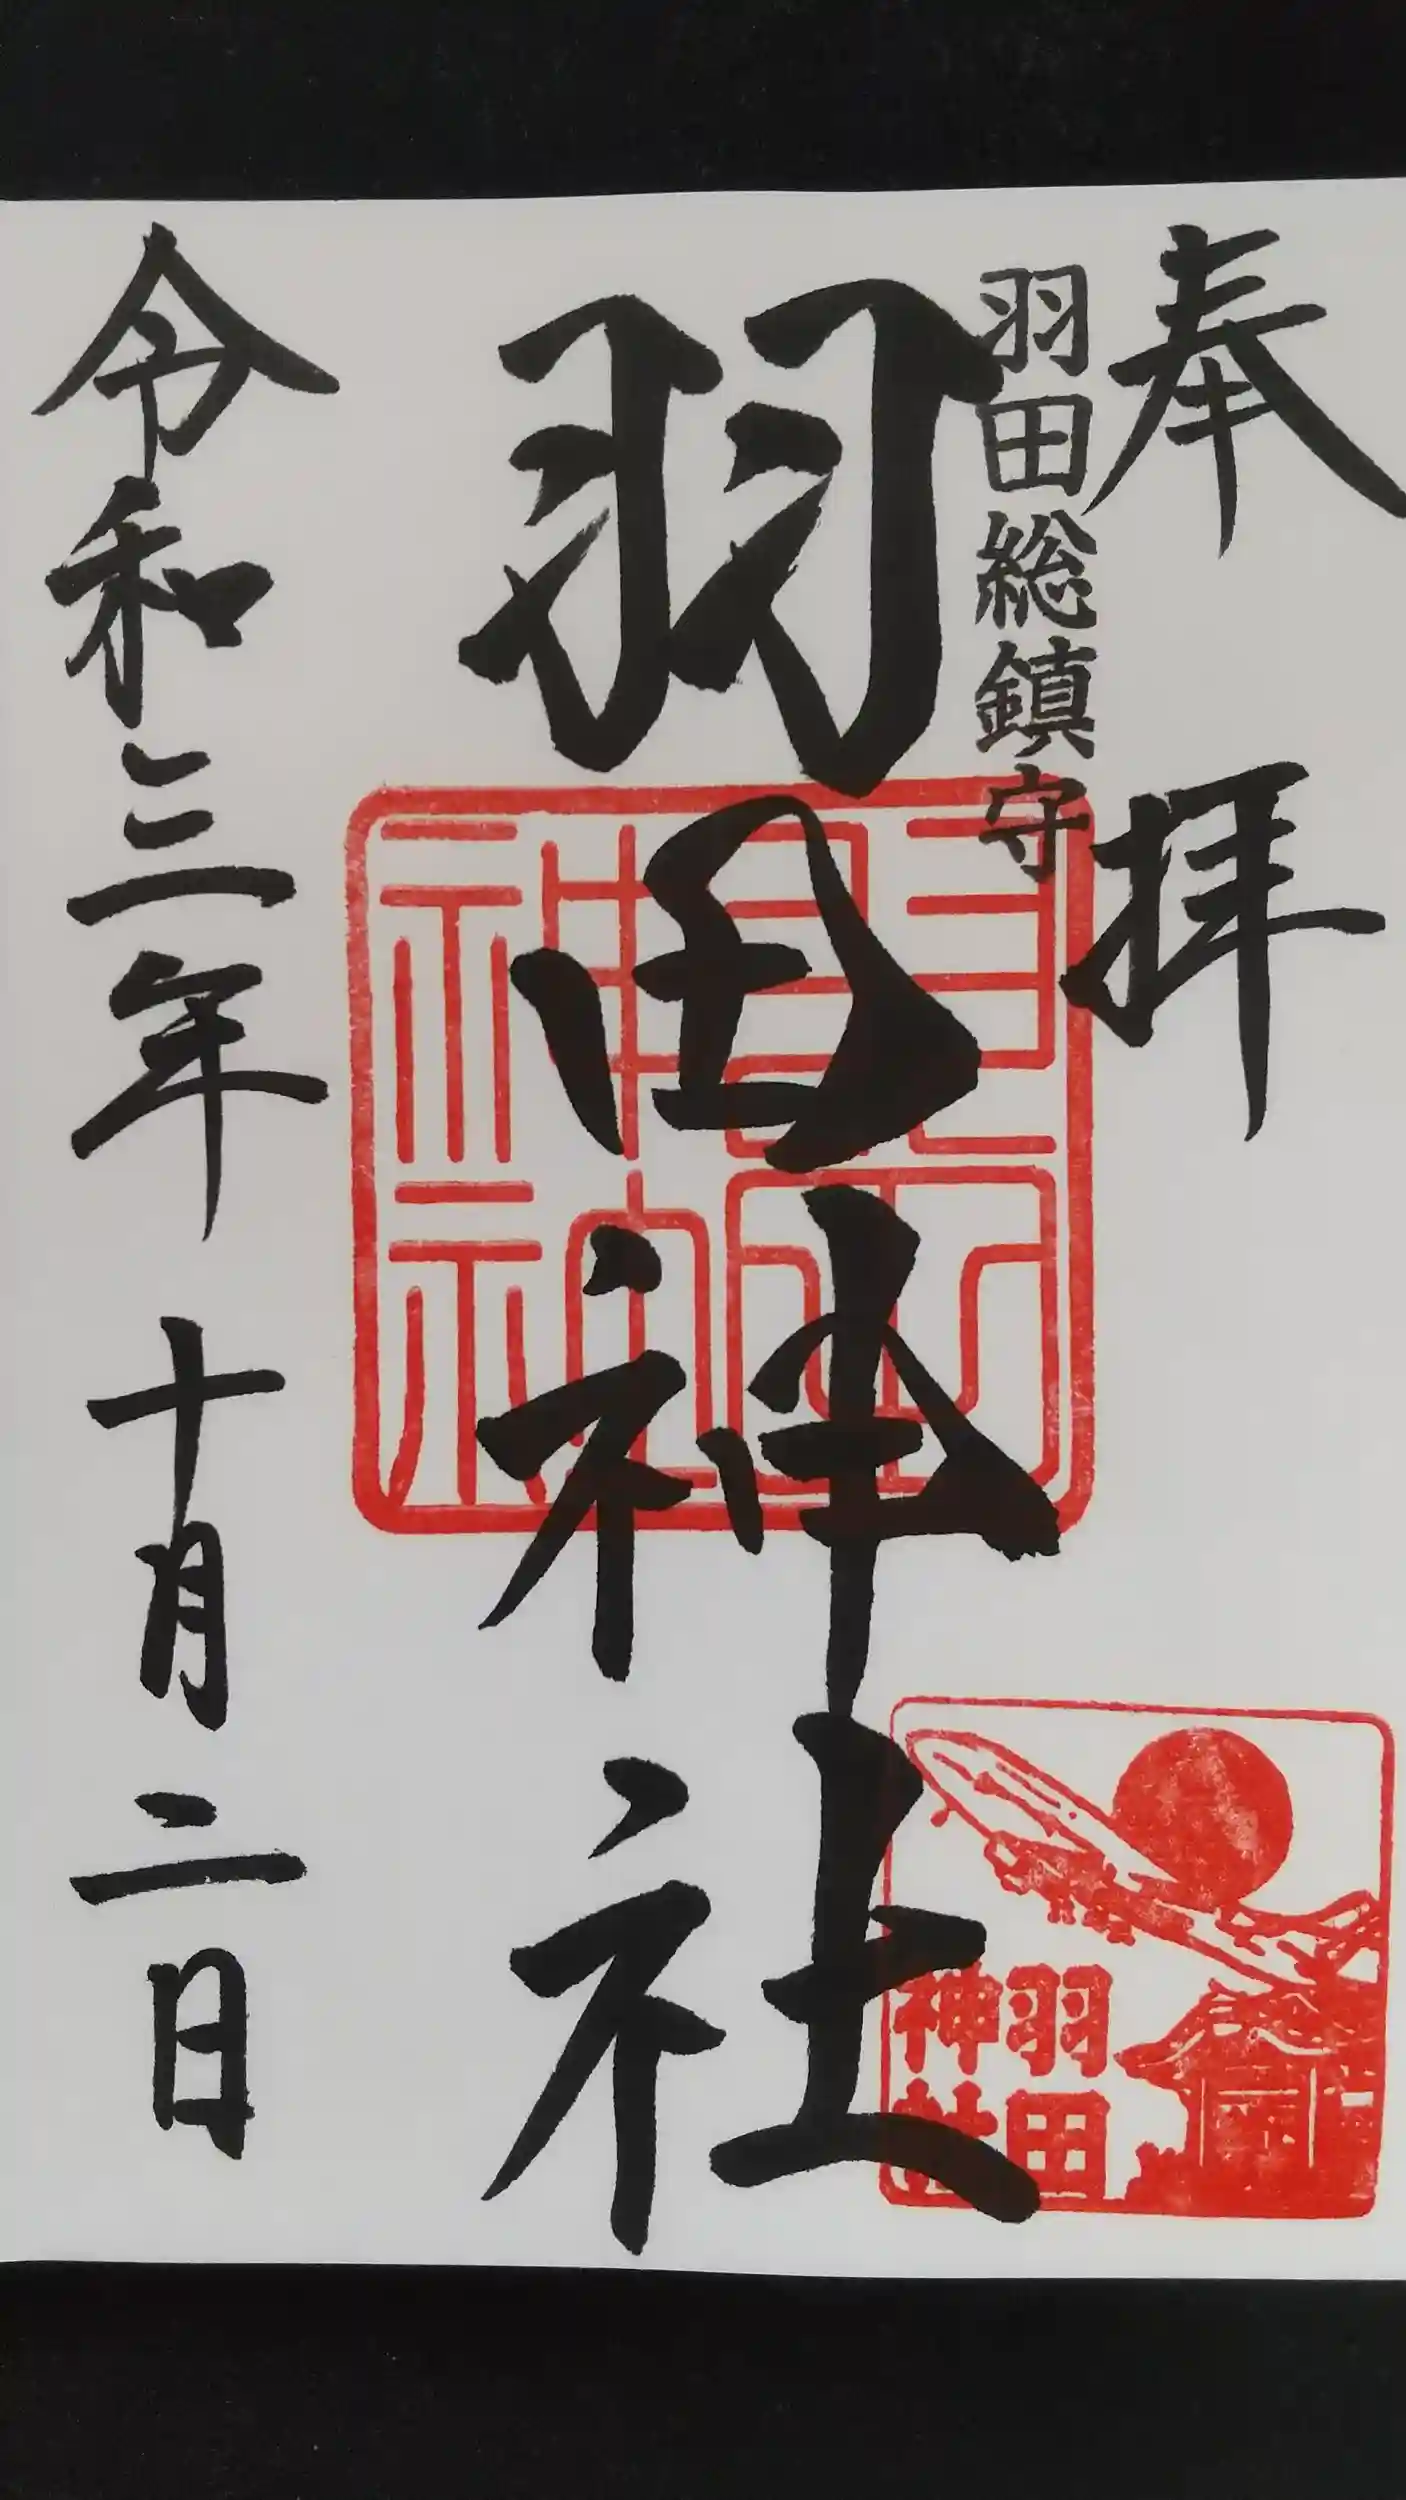 奉拝
羽田総鎮守
羽田神社
羽田
神社
令和三年 十月二日